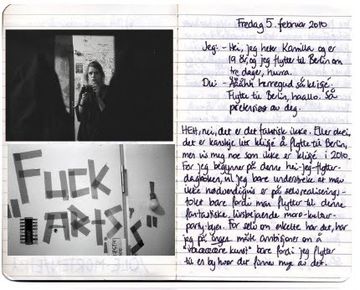 Fredag 5. februar 2010
Jeg: - Hei, jeg heter Kamilla og er
19 år og jeg flytter til Berlin om
tre dager, hurra.
Du: - Åååhh herregud så klisjé.
Flytte til Berlin, haallo. Så
pretensiøst av deg.
HEH, nei, det er det faktisk ikke. Eller dvs,
det er kanskje litt klisjé å flytte til Berlin,
men vis meg noe som ikke er klisjé i 2010.
Før jeg begynner på denne hei-jeg-flytter-
dagboken, vil jeg bare understreke at man
ikke nødvendigvis er på selvrealiserings-
toktet bare fordi man flytter til denne
fantastiske, livsbejaende
party-byen. For selv om enkelte har det, har
jeg på ingen måte ambisjoner om å
kunst" bare fordi jeg flytter
til en by hvor det finnes mye av det.
"Fuck
ARTS"